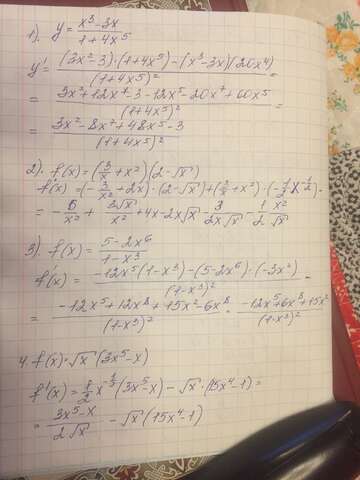 1). y = (x³-3x)/(1+4x⁵)
y' = ((3x²-3)·(1+4x⁵)-(x³-3x)(20x⁴))/(1+4x⁵)² =
= (3x²+12x⁷-3-12x⁵-20x⁷+60x⁵)/(1+4x⁵)² =
= (3x²-8x⁷+48x⁵-3)/(1+4x⁵)²
2). f(x) = (3/x+x²)(2-√x)
f'(x) = (-3/x²+2x)·(2-√x)+(3/x+x²)·(-1/2 x^(1/2)) =
= -6/x² + 3√x/x² + 4x-2x√x - 3/(2x√x) - 1/2 x²/√x
3). f(x) = (5-2x⁶)/(1-x³)
f'(x) = (-12x⁵(1-x³)-(5-2x⁶)·(-3x²))/(1-x³)² =
= (-12x⁵+12x⁸+15x²-6x⁸)/(1-x³)² = (-12x⁵+6x⁸+15x²)/(1-x³)²
4. f(x) = √x (3x⁵-x)
f'(x) = 1/2 x^(1/2) (3x⁵-x) - √x·(15x⁴-1) =
= (3x⁵-x)/(2√x) - √x (15x⁴-1)